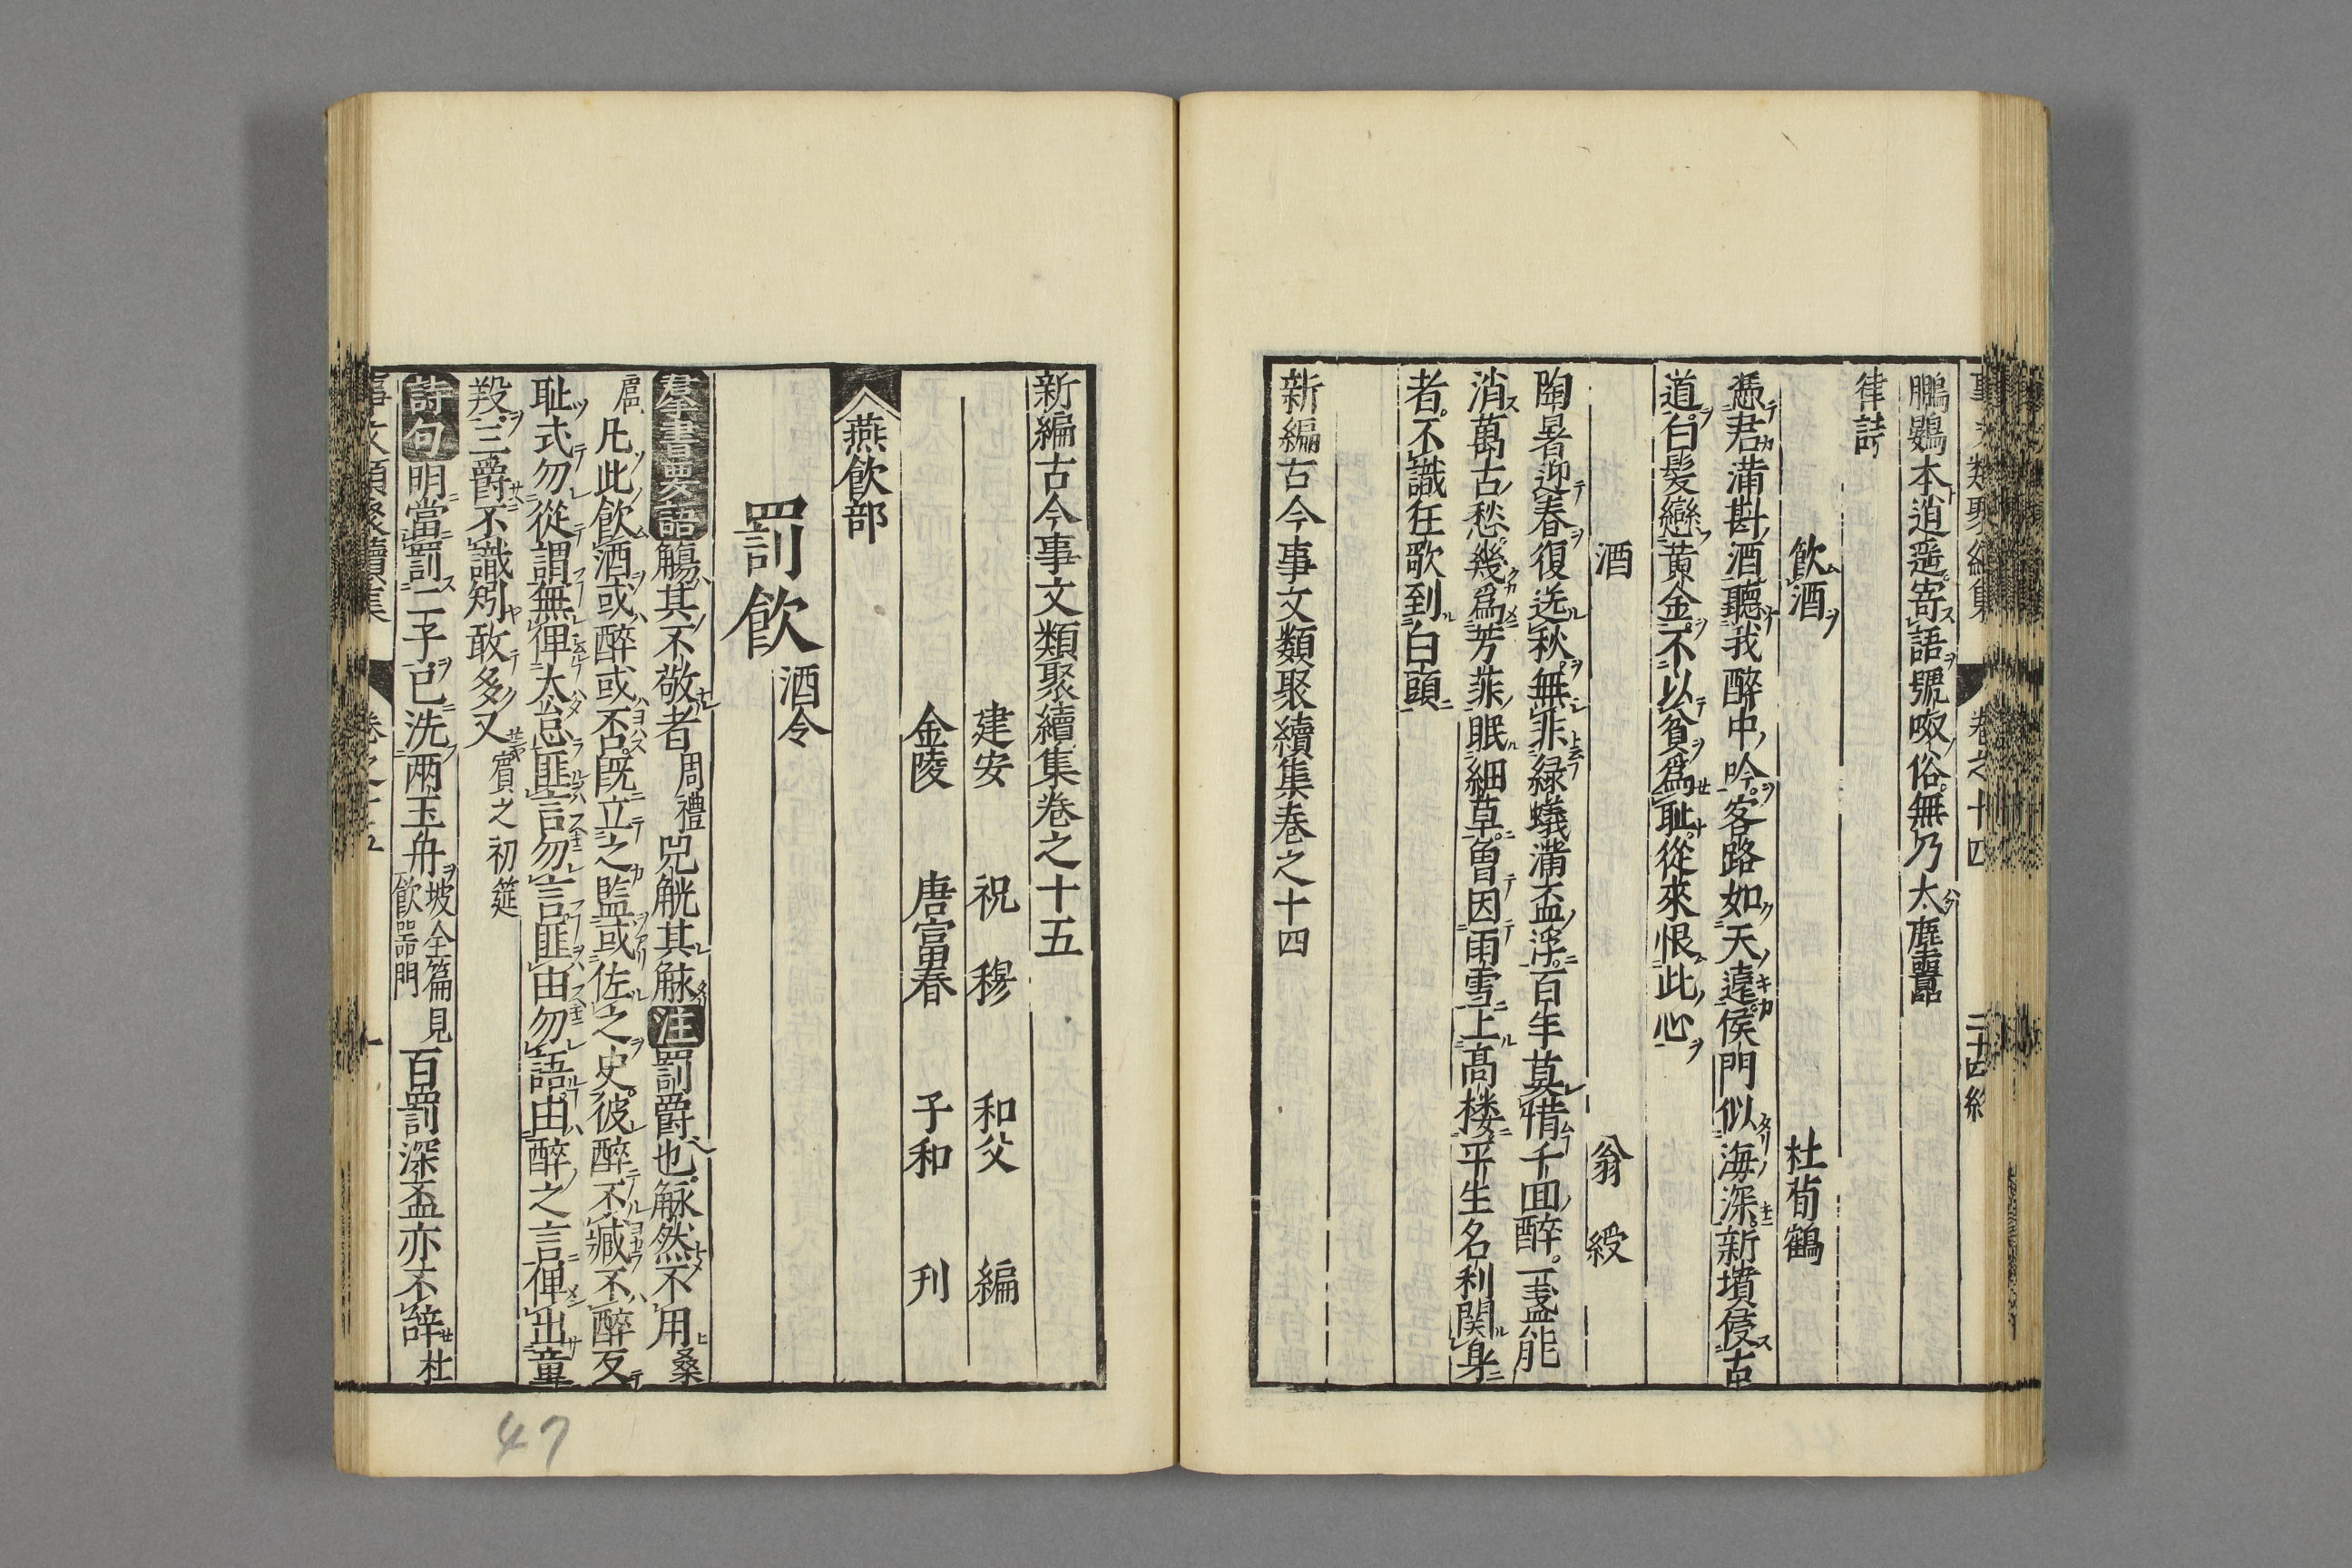 鵬鷃本逍遥寄語號呶俗無乃太麄嚚
律詩
飲酒 杜荀鶴
憑君滿斟酒聽我醉中吟客路如天遠侯門似海深新墳侵古
道白髪戀黄金不以貧爲耻從來恨此心
酒 翁綬
陶暑迎春復送秋無非緑蟻滿盃浮百年莫惜千回醉一盞能
消萬古愁幾爲芳菲眠細草曽因雨雪上髙楼平生名利関身
者不識狂歌到白頭
新編古今事文類聚續集卷之十四
新編古今事文類聚續集卷之十五
建安 祝穆 和父 編
金陵 唐富春 子和 刊
燕飲部
罰飲 酒令
羣書要語 觴其不敬者 周禮 兕觥其觩 注 罰爵也觩然不用 桑
扈 凡此飲酒或醉或否既立之監或佐之史彼醉不臧不醉反
耻式勿從謂無俾太怠匪言勿言匪由勿語由醉之言俾出童
羖三爵不識矧敢多又 賓之初筵
詩句 明當罰二子已洗兩玉舟 坡全篇見飲器門 百罰深盃亦不辞 杜